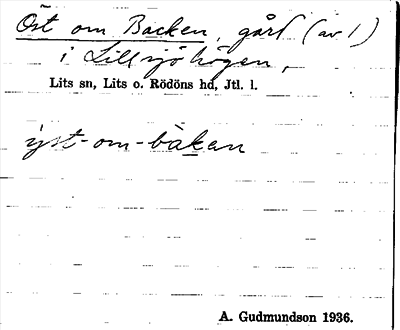 Öst om Backen, gård (av 1)
i Lillsjöhögen,
Lits sn, Lits o. Rödöns hd, Jtl. l.
ÿst-om-bàkan
A. Gudmundson 1936.